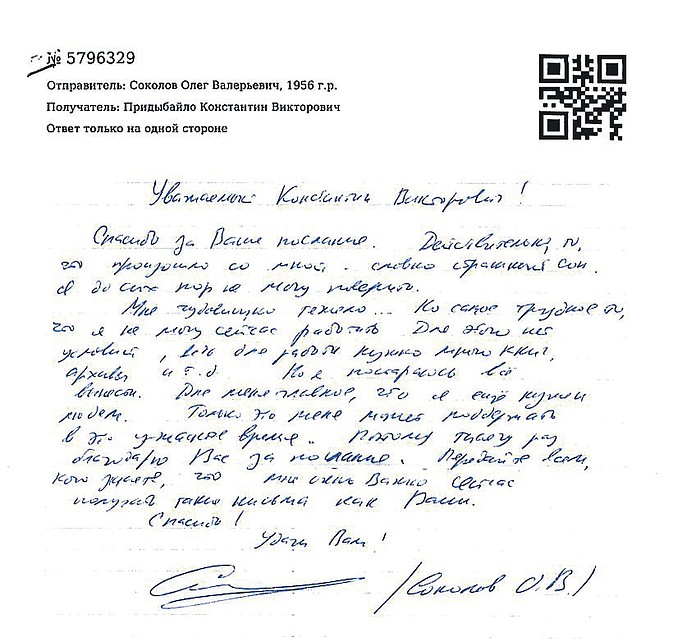 № 5796329
Отправитель: Соколов Олег Валерьевич, 1956 г.р.
Получатель: Придыбайло Константин Викторович
Ответ только на одной стороне
Уважаемый Константин Викторович!
Спасибо за Ваше послание. Действительно, то,
что произошло со мной - словно страшный сон.
Я до сих пор не могу поверить.
Мне чудовищно тяжело... Но самое трудное то,
что я не могу сейчас работать. Для этого нет
условий, ведь для работы нужно много книг,
архивы и т.д. Но я постараюсь всё
вынести. Для меня главное, что я ещё нужен
людям. Только это меня может поддержать
в это ужасное время. Поэтому тысячу раз
благодарю Вас за послание. Передайте всем,
кого знаете, что мне очень важно сейчас
получать такие письма как Ваши.
Спасибо!
Удачи Вам!
/Соколов О.В./